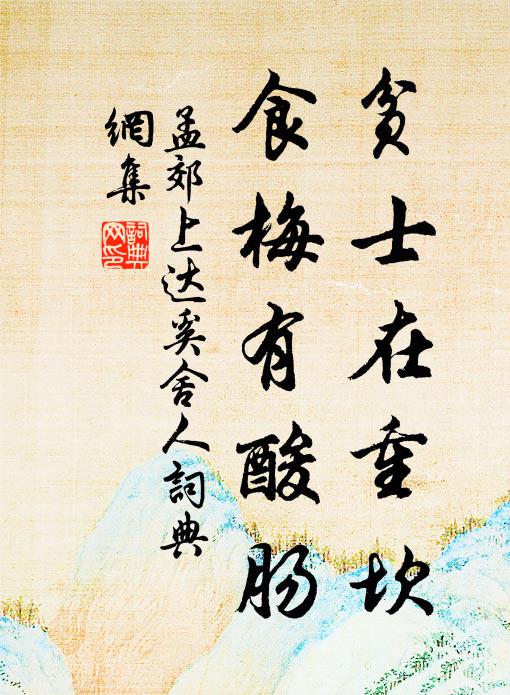 贫士在重坎
食梅有酸肠
孟郊上达奚舍人词典
網集
詞典網印